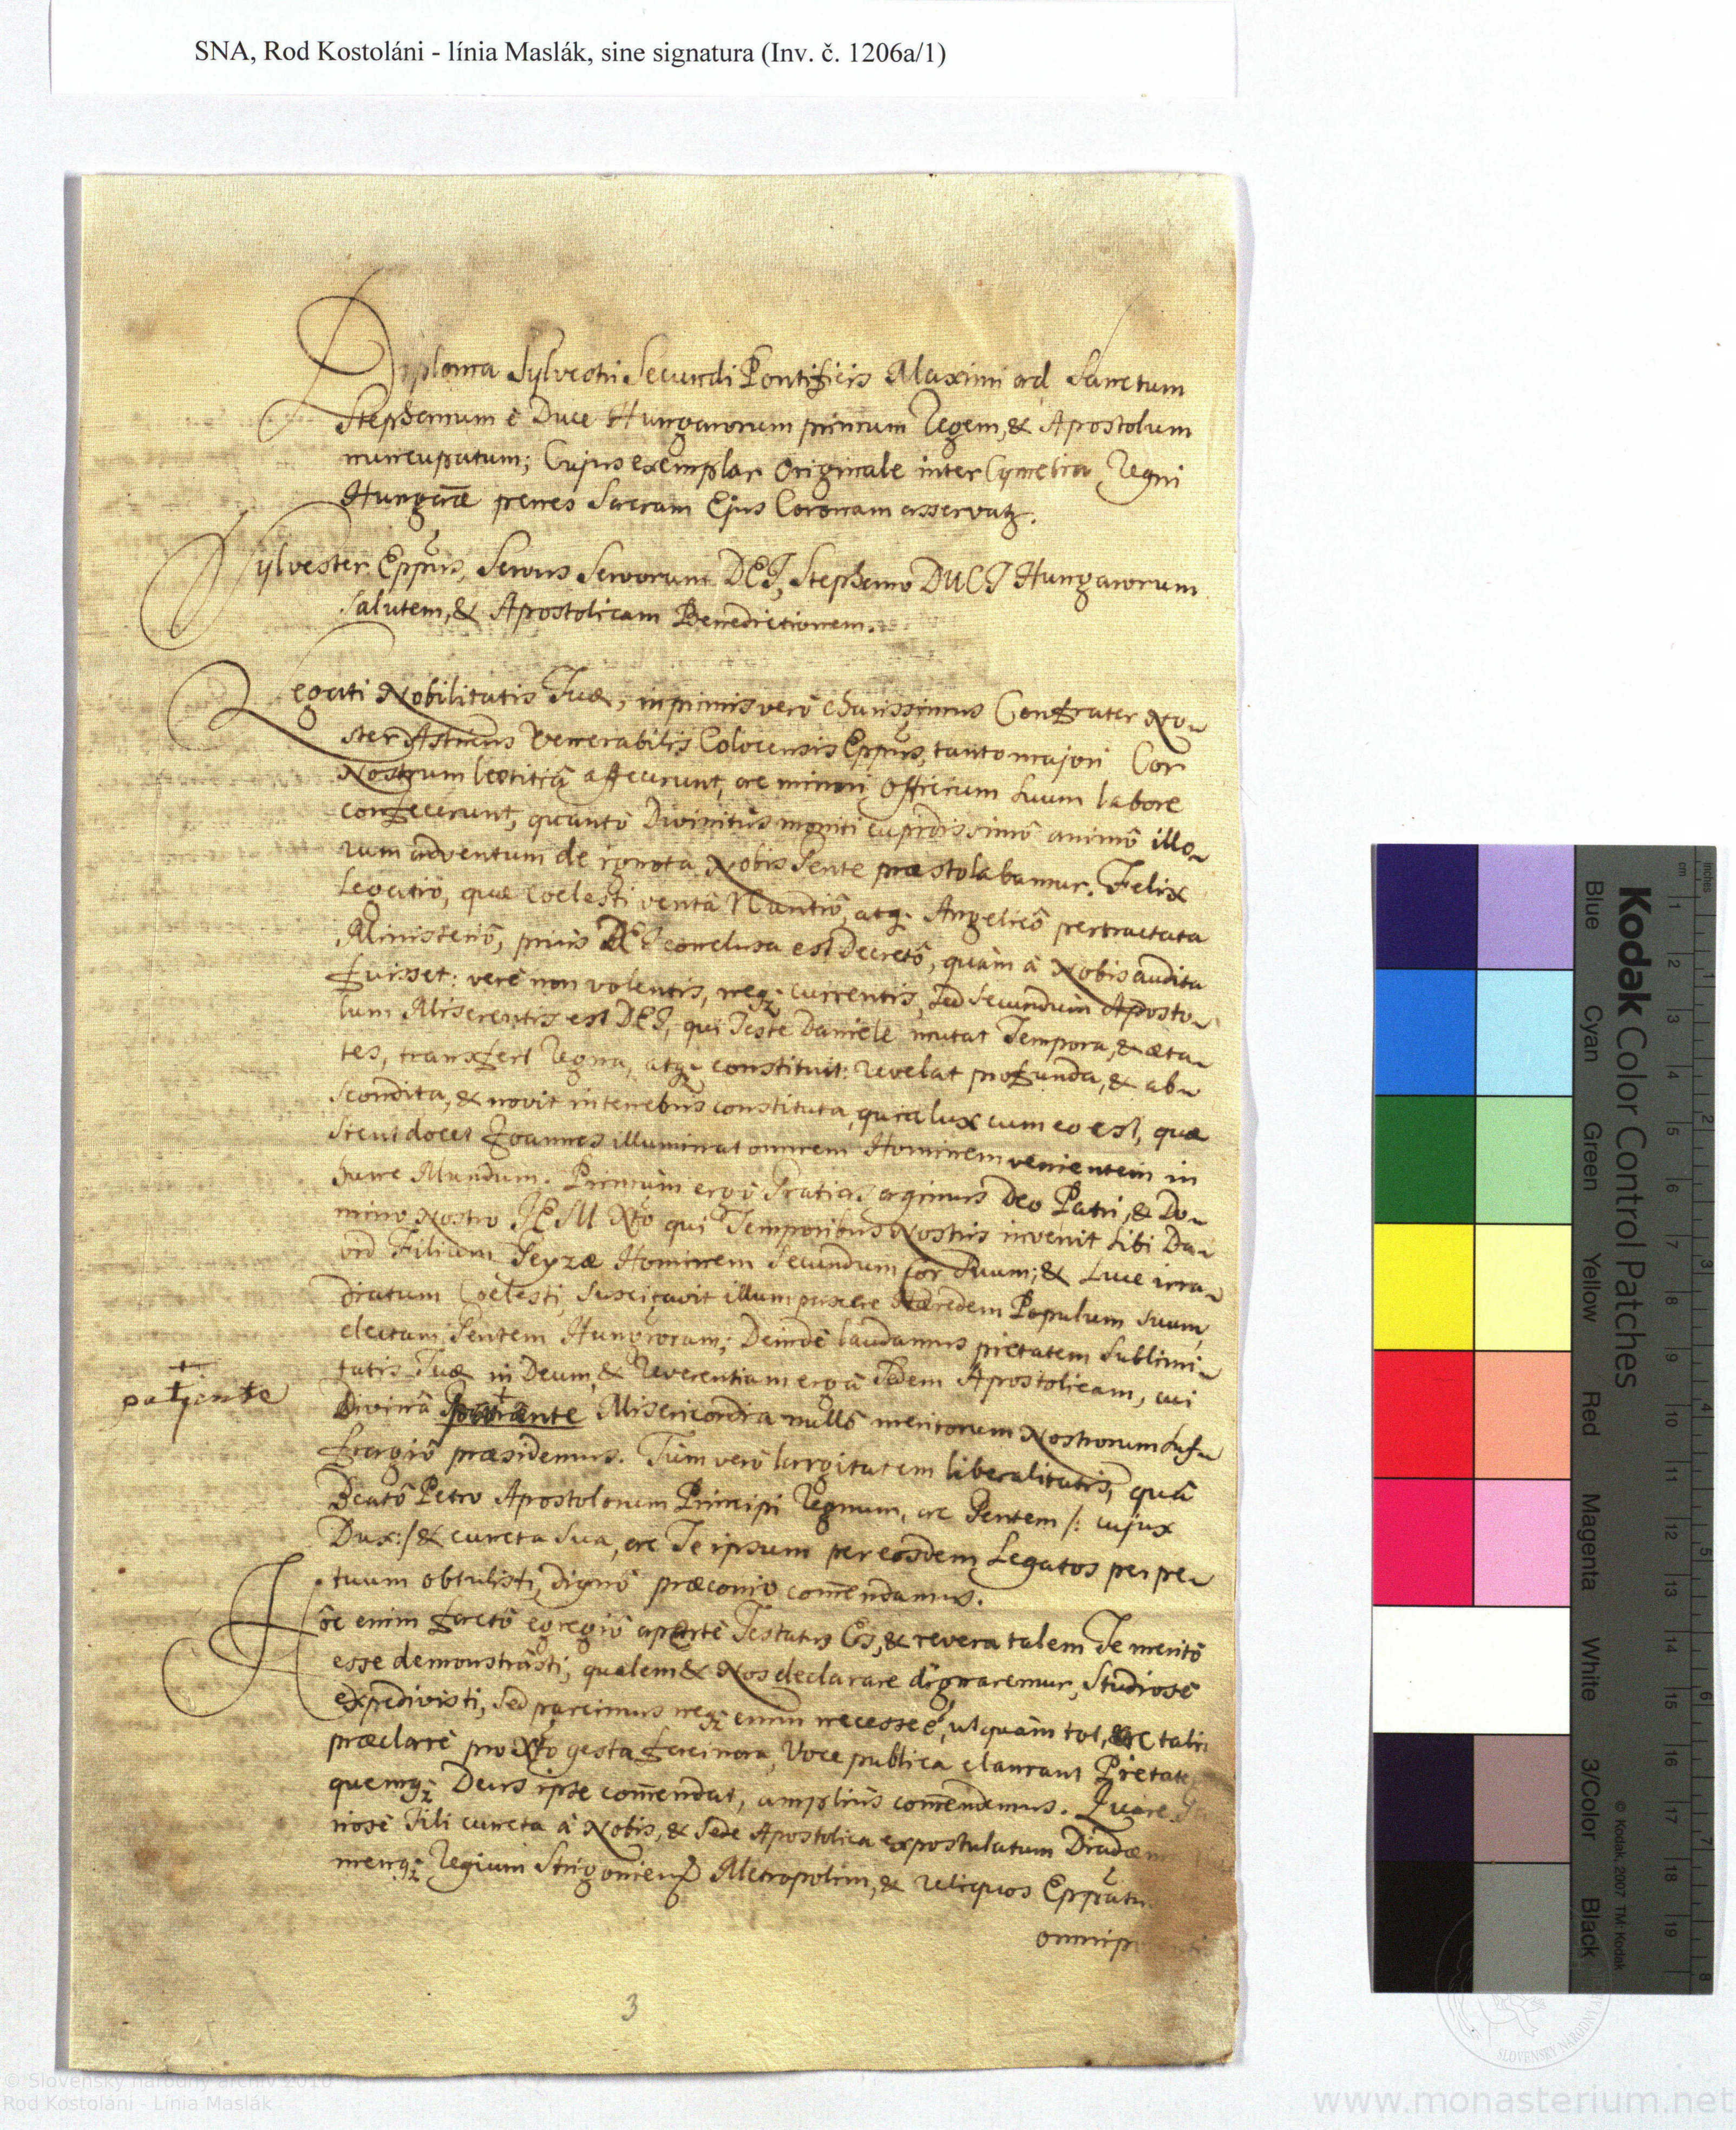 SNA, Rod Kostoláni - línia Maslák, sine signatura (Inv. č. 1206a/1)
Diploma Sylvestri Secundi Pontificis Maximi ad Sanctum
Stephanum è Duce Hungarorum primum Regem, & Apostolum
nuncupatum; Cujus exemplar Originale inter Cymelia Regni
Hungariæ penes Sacram Ejus Coronam asservatꝫ.
Sylvester Eppũs, Servus Servorum DEI, Stephano DUCI Hungarorum
Salutem, & Apostolicam Benedictionem.
Legati Nobilitatis Tuæ, inprimis verò charissimus Confrater No-
ster Astricus Venerabilis Colocensis Eppũs, tanto majori Cor
Nostrum lætitiâ affecerunt, ac minori Officium Suum labore
confecerunt, quantò Divinitùs moniti cupidissimô animô illo-
rum adventum de ignota Nobis Gente præstolabamur. Felix
Legatiô, quæ Coelesti ventâ Nuntiô, atqꝫ Angelicô pertractata
Ministeriô, priùs DEI conclusa est Decretô, quàm à Nobis audita
fuisset: verè non volentis, neqꝫ currentis, sed secundùm Aposto-
lum Miserentis est DEI, qui Teste Daniele mutat Tempora, & æta-
tes, transfert Regna, atqꝫ constituit: revelat profunda, & ab-
scondita, & novit in tenebris constituta, quia lux cum eo est, quæ
sicut docet Joannes illuminat omnem Hominem venientem in
hunc Mundum. Primùm ergò Gratias agimus Deo Patri, & Do-
mino Nostro JESU Xto qui Temporibus Nostris invenit Sibi Da-
vid Filium Geyzæ Hominem secundum Cor Suum; & Luce irra-
diatum Coelesti, suscitavit illum pascere Hæredem Populum suum,
electam Gentem Hungroram; Deindè laudamus pietatem Sublimi-
tatis Tuæ in Deum, & Reverentiam ergâ Sedem Apostolicam, cui
+
patiente
Divinâ + Misericordia nullô meritorum Nostrorum Suf-
fragiô præsidemus. Tùm verò largitatem liberalitatis, quâ
Beatô Petro Apostolorum Principi Regnum, ac Gentem /: cujux
Dux:/ & cuncta Sua, ac Te ipsum per eosdem Legatos perpe-
tuum obtulisti, dignô præconio com̃endamus.
Hôc enim factô egregiô apertè Testatus Es, & revera talem Te meritò
esse demonstrâsti, qualem & Nos declarare dignaremur, Studiosè
expedivisti, Sed parcimus neqꝫ enim necesse ẽ, ut quàm tot, ac talia
præclarè pro Xto gesta facinora, Voce publica clamant Pietate
quemqꝫ Deus ipse com̃endat, ampliùs com̃endemus. Quare
riosè Fili cuncta à Nobis, & Sede Apostolica expostulatum Diadem
menqꝫ Regium Strigoniens Metropolim, & reliquos Eppũatu
omnip
3
Kodak Color Control Patches
Blue Cyan Green Yellow Red Magenta White 3/Color Black
© Kodak, 2007 TM: Kodak
inches 1 2 3 4 5 6 7 8
cm 1 2 3 4 5 6 7 8 9 10 11 12 13 14 15 16 17 18 19
© Slovenský národný archív 2010
Rod Kostoláni - Línia Maslák
www.monasterium.net